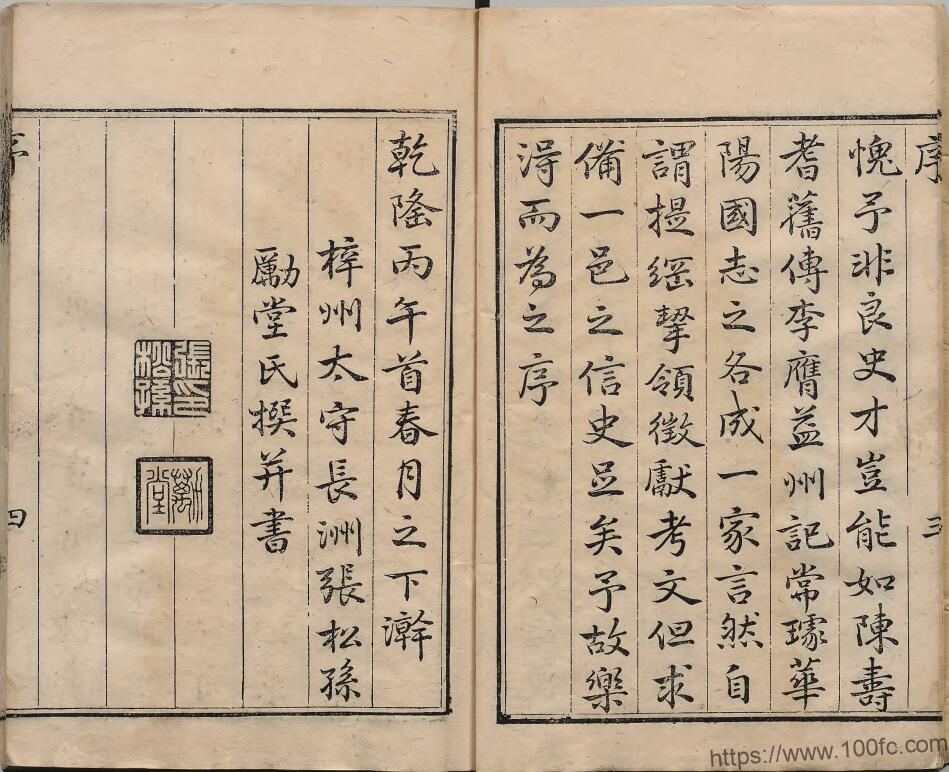 序
三
愧予非良史才豈能如陳壽
耆舊傳李膺益州記常璩華
陽國志之各成一家言然自
謂提綱挈領徵獻考文但求
備一邑之信史足矣予故樂
得而為之序
乾隆丙午首春月之下澣
梓州太守長洲張松孫
勵堂氏撰并書
張印松孫
勵堂
序
四
https://www.100fc.com